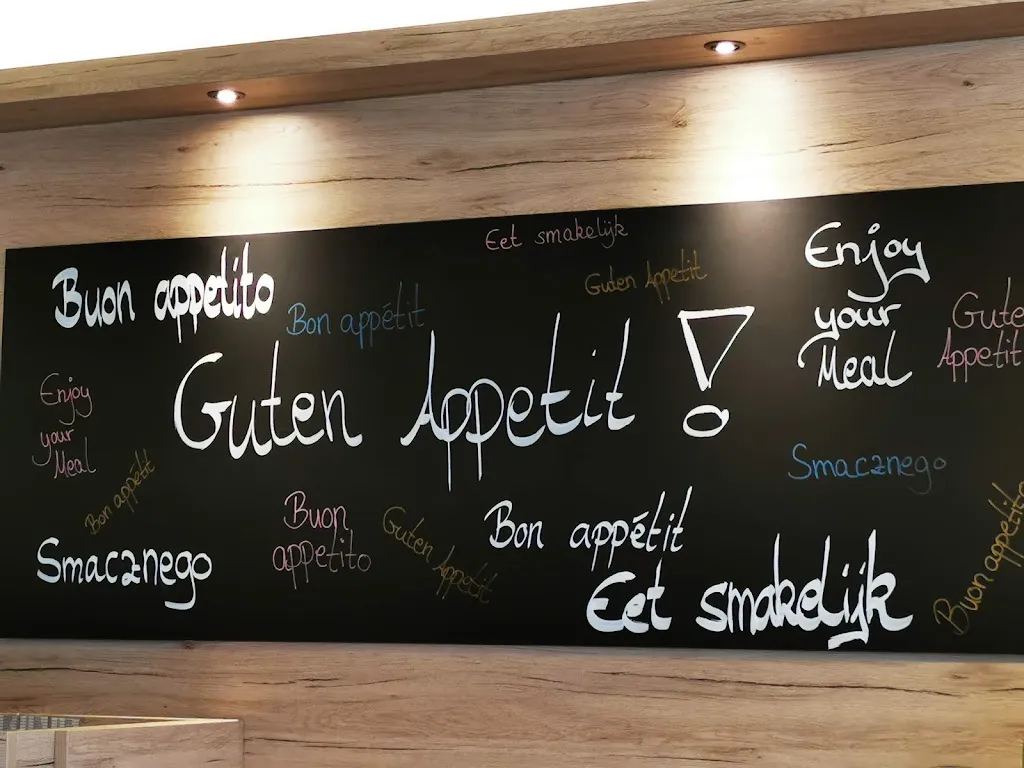 Eet smakelijk
Guten Appetit
Buon appetito
Bon appétit
Enjoy
your
Meal
Guten Appetit!
Gute
Appetit
Enjoy
your
Meal
Bon appétit
Smacznego
Smacznego
Buon
appetito
Guten Appetit
Bon appétit
Eet smakelijk
Buon appetito